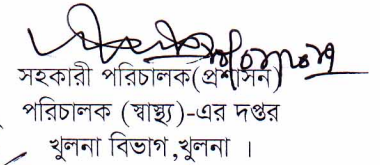 সহকারী পরিচালক(প্রশাসন)
পরিচালক (স্বাস্থ্য)-এর দপ্তর
খুলনা বিভাগ,খুলনা ।